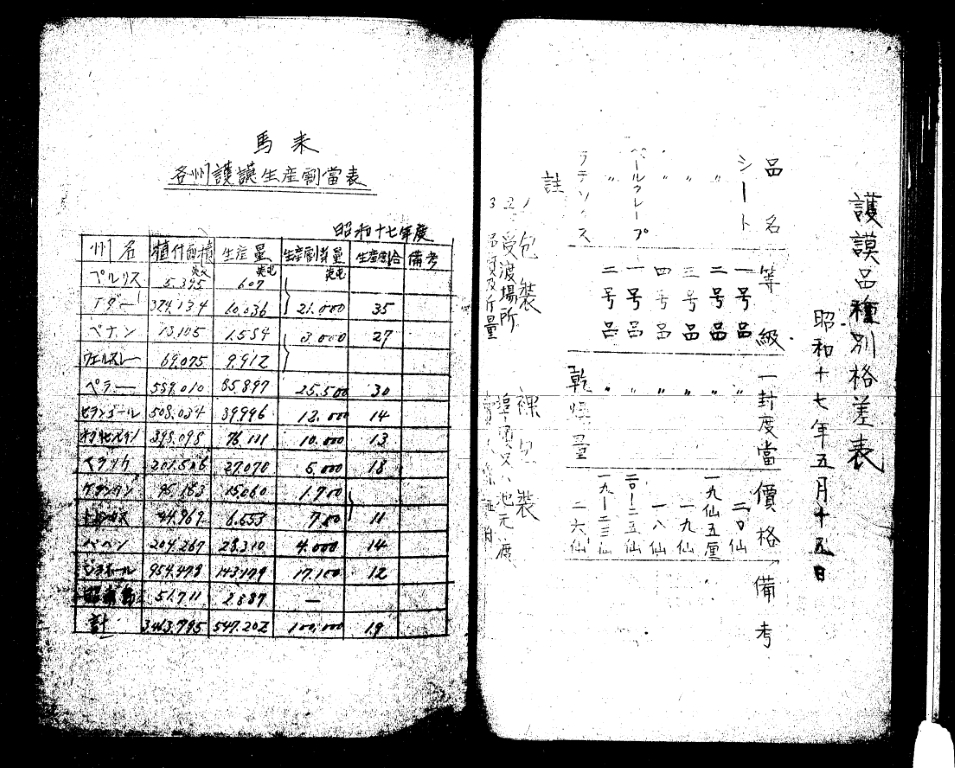 護謨品種別格差表
昭和十七年五月十五日
品名 等級 一封度當價格 備考
シート 一号品 〃 二〇仙
〃 二号品 〃 一九仙五厘
〃 三号品 〃 一九仙
〃 四号品 〃 一八仙
ペールクレープ 一号品 〃 二〇-二五仙
二号品 一九-二三仙
ラテックス 乾燥量 二六仙
註
1 包装 裸包装
2 受渡場所
3 品質及斤量
馬来
各州護謨生産割當表
昭和十七年度
州名 植付面積 生産量 生産割當量 生産割合 備考
英反 英屯 英屯
ペルリス 5.395 607
ケダー 329.134 10.036 21.000 35
ペナン 13.105 1.554 3.000 27
ウェルスレー 69.075 9.912
ペラー 559.010 85.897 25.500 30
セランゴール 508.034 39.996 12.000 14
ネグリセンビラン 393.098 76.111 10.000 13
マラッカ 201.526 27.070 5.000 18
ケランタン 15.060 1.700
トレンガヌ 6.553 700 11
パハン 204.267 28.210 4.000 14
ジョホール 954.479 143.179 17.100 12
昭南島 51.711 2.887 —
計 3,463,795 547.202 100,000 19